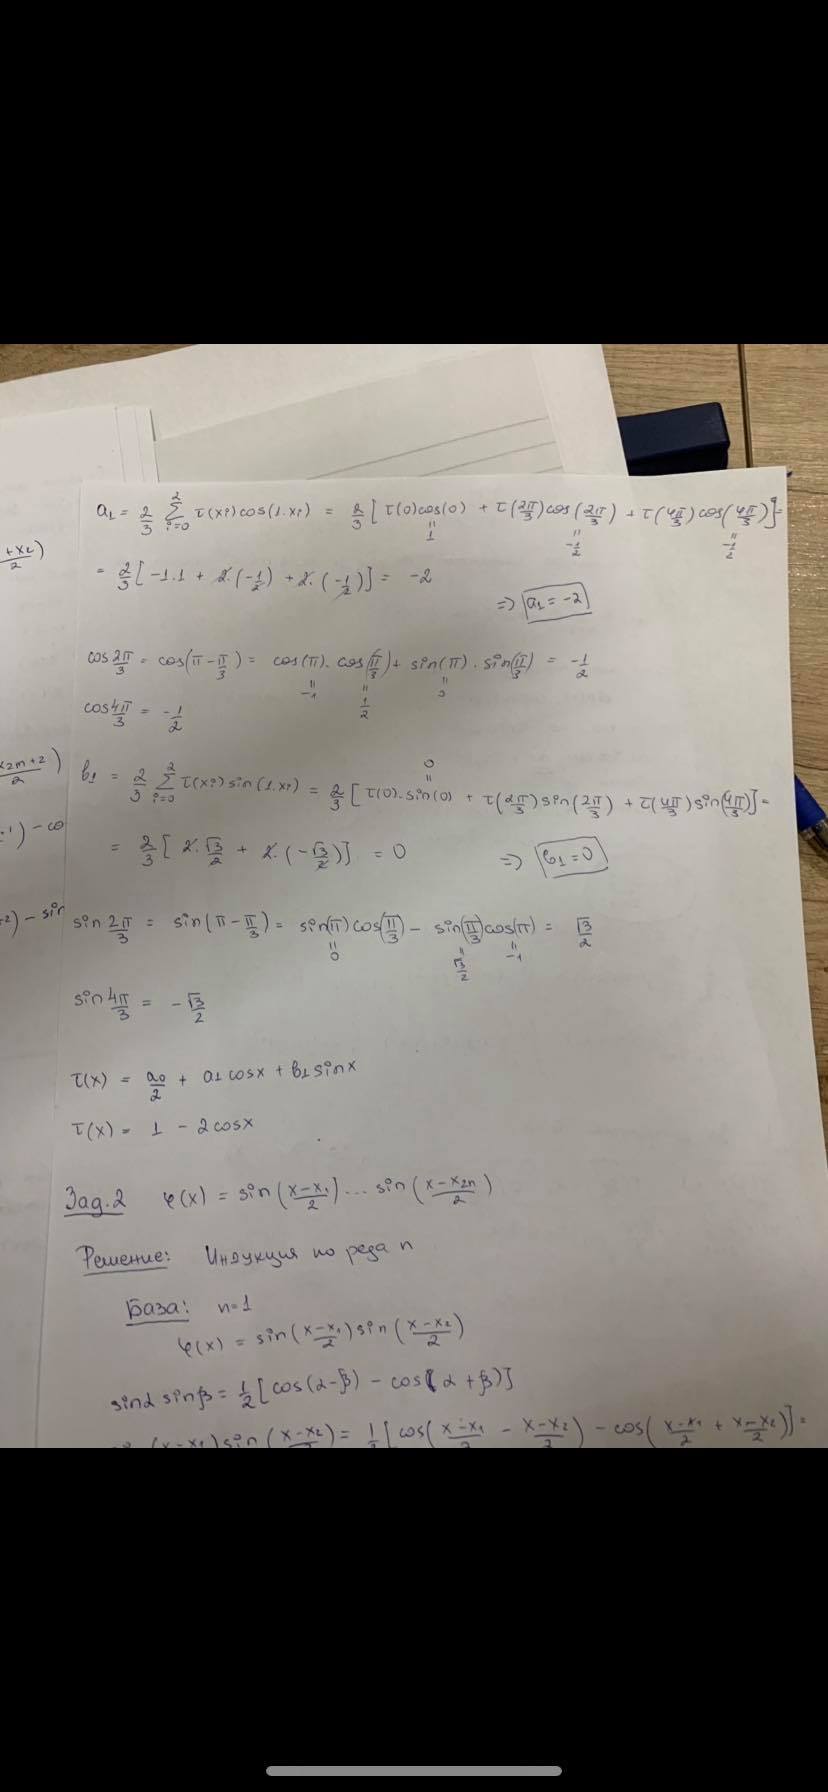 a₁ = 2/3 Σ_{i=0}^{2} τ(xᵢ)cos(1.xᵢ) = 2/3 [τ(0)cos(0) + τ(2π/3)cos(2π/3) + τ(4π/3)cos(4π/3)] =
"1 "-1/2 "-1/2
= 2/3 [-1.1 + 2.(-1/2) + 2.(-1/2)] = -2
=> a₁ = -2
cos 2π/3 = cos(π - π/3) = cos(π).cos(π/3) + sin(π).sin(π/3) = -1/2
"-1 "1/2 "0
cos 4π/3 = -1/2
0
"
b₁ = 2/3 Σ_{i=0}^{2} τ(xᵢ)sin(1.xᵢ) = 2/3 [τ(0).sin(0) + τ(2π/3)sin(2π/3) + τ(4π/3)sin(4π/3)] =
= 2/3 [2.√3/2 + 2.(-√3/2)] = 0
=> b₁ = 0
sin 2π/3 = sin(π - π/3) = sin(π)cos(π/3) - sin(π/3)cos(π) = √3/2
"0 "√3/2 "-1
sin 4π/3 = -√3/2
τ(x) = a₀/2 + a₁cosx + b₁sinx
τ(x) = 1 - 2cosx
Зад.2 φ(x) = sin((x-x₁)/2) ... sin((x-x₂ₙ)/2)
Решение: Индукция по реда n
База: n=1
φ(x) = sin((x-x₁)/2)sin((x-x₂)/2)
sinα sinβ = 1/2 [cos(α-β) - cos(α+β)]
(x-x₁)sin((x-x₂)/2) = 1/2 [cos((x-x₁)/2 - (x-x₂)/2) - cos((x-x₁)/2 + (x-x₂)/2)] =
+x₂)/2
x₂ₘ₊₂)/2
) - co
) - sin